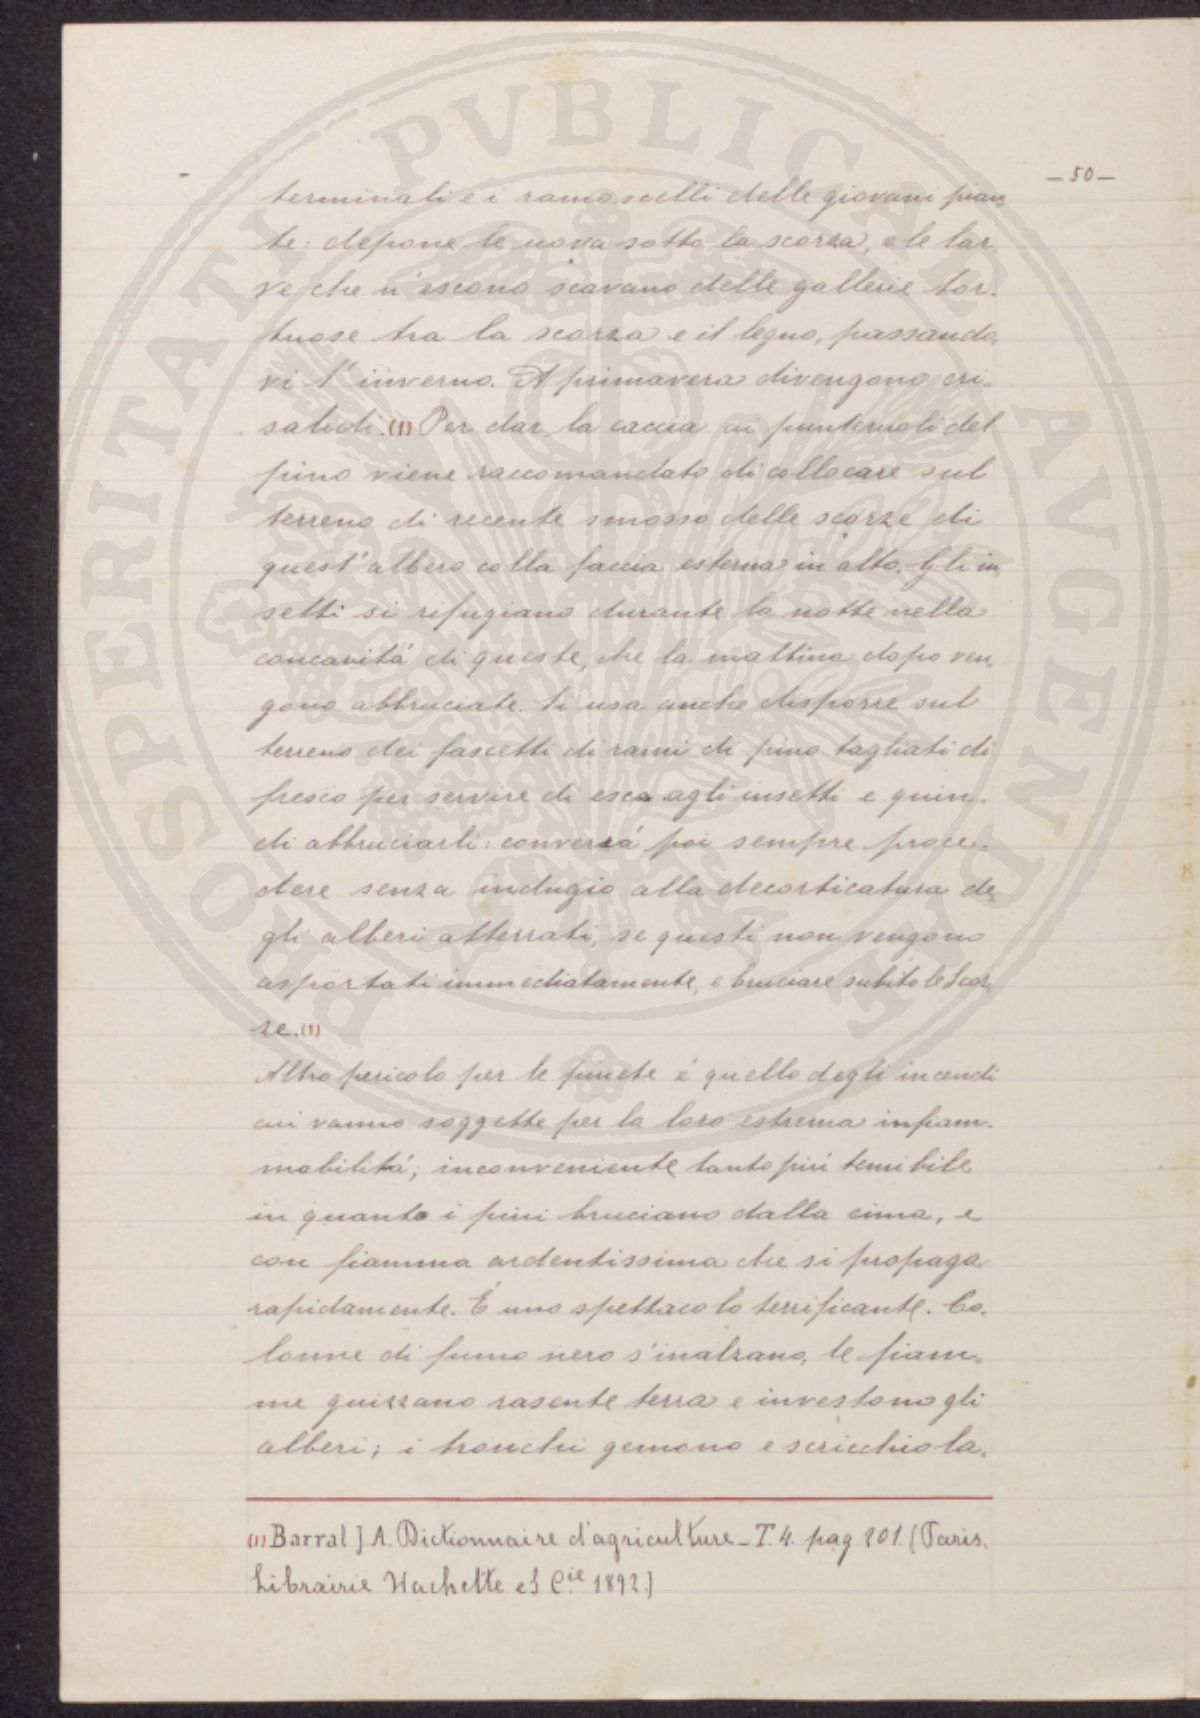 — 50 —
terminali e i ramoscelli delle giovani pian
te: depone le uova sotto la scorza, e le lar-
ve che n'escono scavano delle gallerie tor-
tuose tra la scorza e il legno, passando
vi l'inverno. A primavera divengono cri-
salidi.(1) Per dar la caccia ai punteruoli del
pino viene raccomandato di collocare sul
terreno di recente smosso delle scorze di
quest'albero colla faccia esterna in alto. Gli in
setti si rifugiano durante la notte nella
concavitá di queste, che la mattina dopo ven
gono abbruciate. Si usa anche disporre sul
terreno dei fascetti di rami di pino tagliati di
fresco per servire di esca agli insetti e quin-
di abbruciarli: converrá poi sempre proce-
dere senza indugio alla decorticatura de
gli alberi atterrati, se questi non vengono
asportati immediatamente, e bruciare subito le scor
ze.(1)
Altro pericolo per le pinete é quello degli incendi
cui vanno soggette per la loro estrema infiam-
mabilitá; inconveniente tanto piú temibile
in quanto i pini bruciano dalla cima, e
con fiamma ardentissima che si propaga
rapidamente. É uno spettacolo terrificante. Co-
lonne di fumo nero s'inalzano, le fiam-
me guizzano rasente terra e investono gli
alberi; i tronchi gemono e scricchiola-
(1) Barral J A. Dictionnaire d'agriculture - T. 4. pag 201. (Paris.
Librairie Hachette et C.ie 1892.)
PROSPERITATI PVBLICAE AVGENDAE